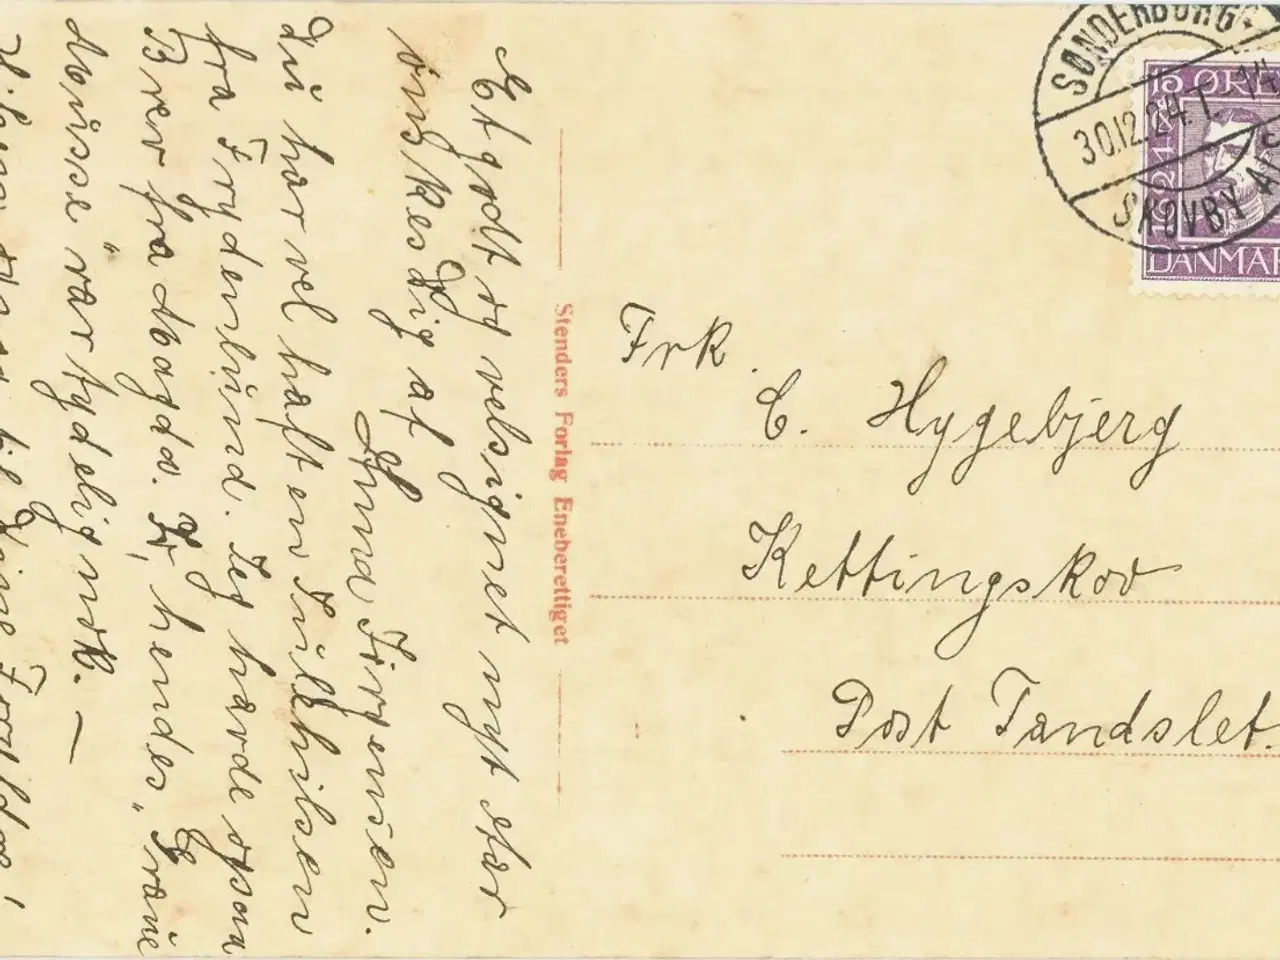 SØNDERBORG
30.12.24.T.
SKOVBY ALS
15 ØRE
1624
DANMARK
Stenders Forlag Eneberettiget
Frk.
C. Hygebjerg
Kettingskov
Post Tandslet.
Et godt og velsignet nyt Aar
ønskes Dig af
Anna Jörgensen.
Du har vel haft en Julehilsen
fra Frydenlund. Jeg havde
Brev fra Magda. hendes
var tydelig nok. —
Hilsen til Dine Forældre!